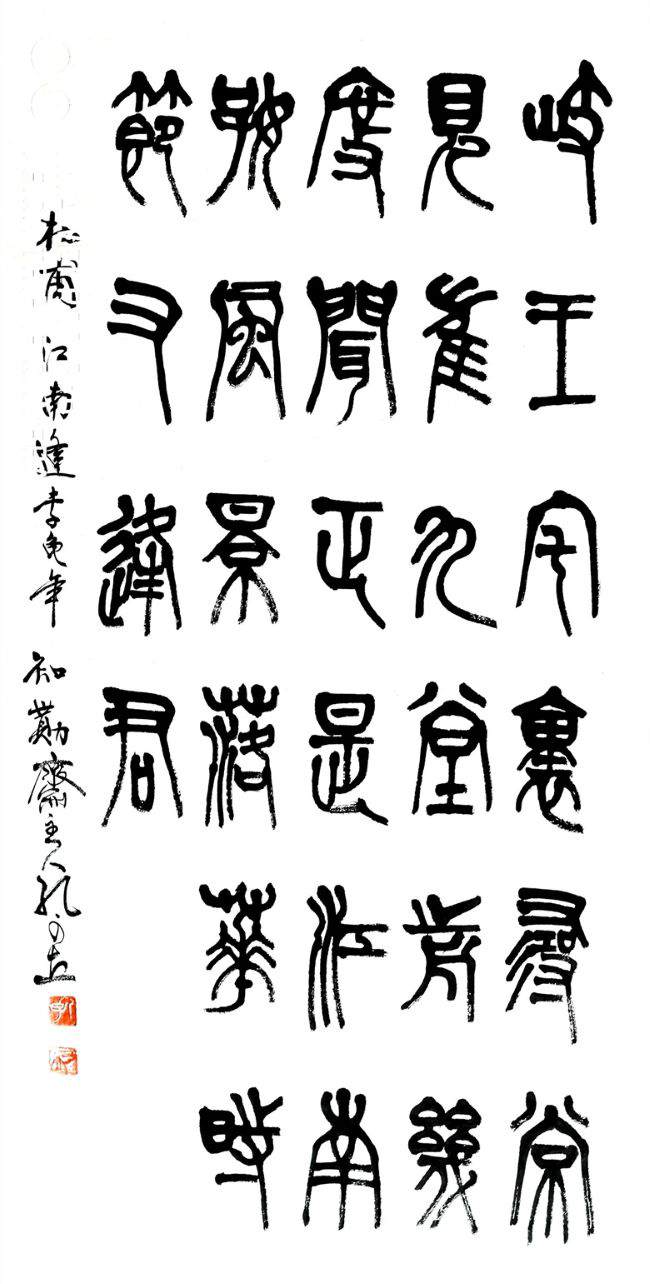 岐王宅裏尋常
見崔九堂前幾
度聞正是江南
好風景落華時
節又逢君
杜甫 江南逢李龟年 知勤齋主人